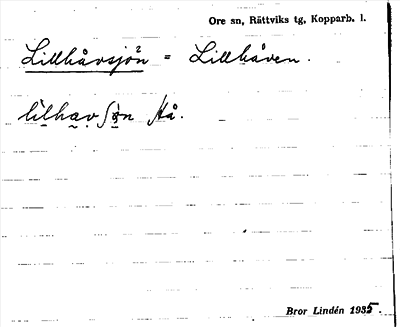 Ore sn, Rättviks tg, Kopparb. l.
Lillhåvsjön² = Lillhåven.
Hå.
Bror Lindén 1935.